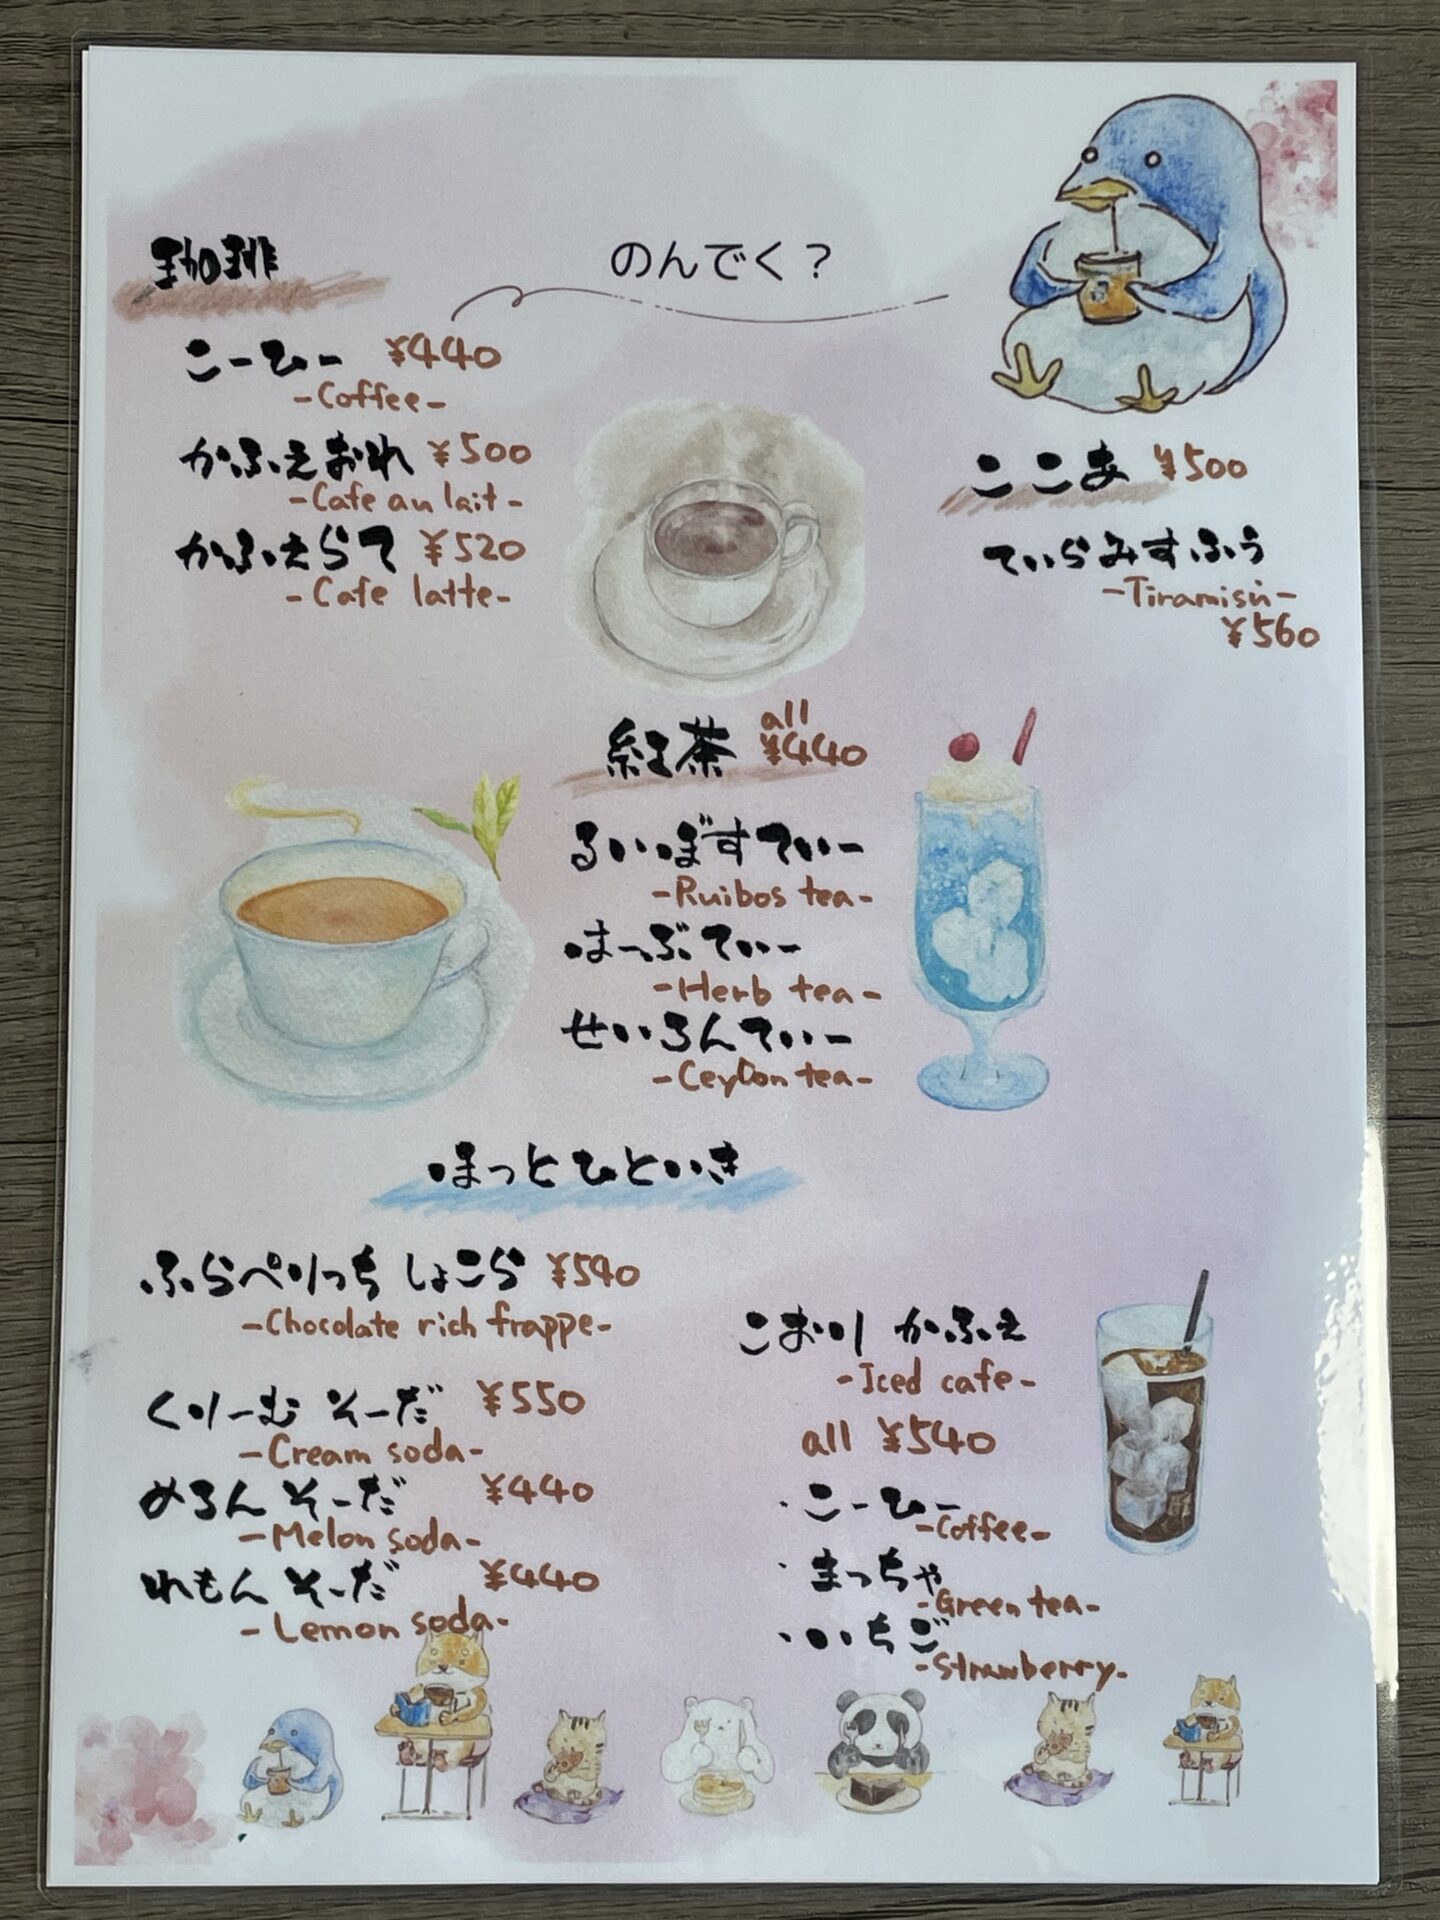 のんでく？
珈琲
こーひー ¥440
-Coffee-
かふぇおれ ¥500
-Cafe au lait-
かふぇらて ¥520
-Cafe latte-
ここあ ¥500
てぃらみすふぅ
-Tiramisù-
¥560
紅茶 all ¥440
るいぼすてぃー
-Ruibos tea-
はーぶてぃー
-Herb tea-
せいろんてぃー
-Ceylon tea-
ほっとひといき
ふらぺりっち しょこら ¥540
-Chocolate rich frappe-
くりーむ そーだ ¥550
-Cream soda-
めろん そーだ ¥440
-Melon soda-
れもん そーだ ¥440
-Lemon soda-
こおり かふぇ
-Iced cafe-
all ¥540
・こーひー
-Coffee-
・まっちゃ
-Green tea-
・いちご
-Strawberry-